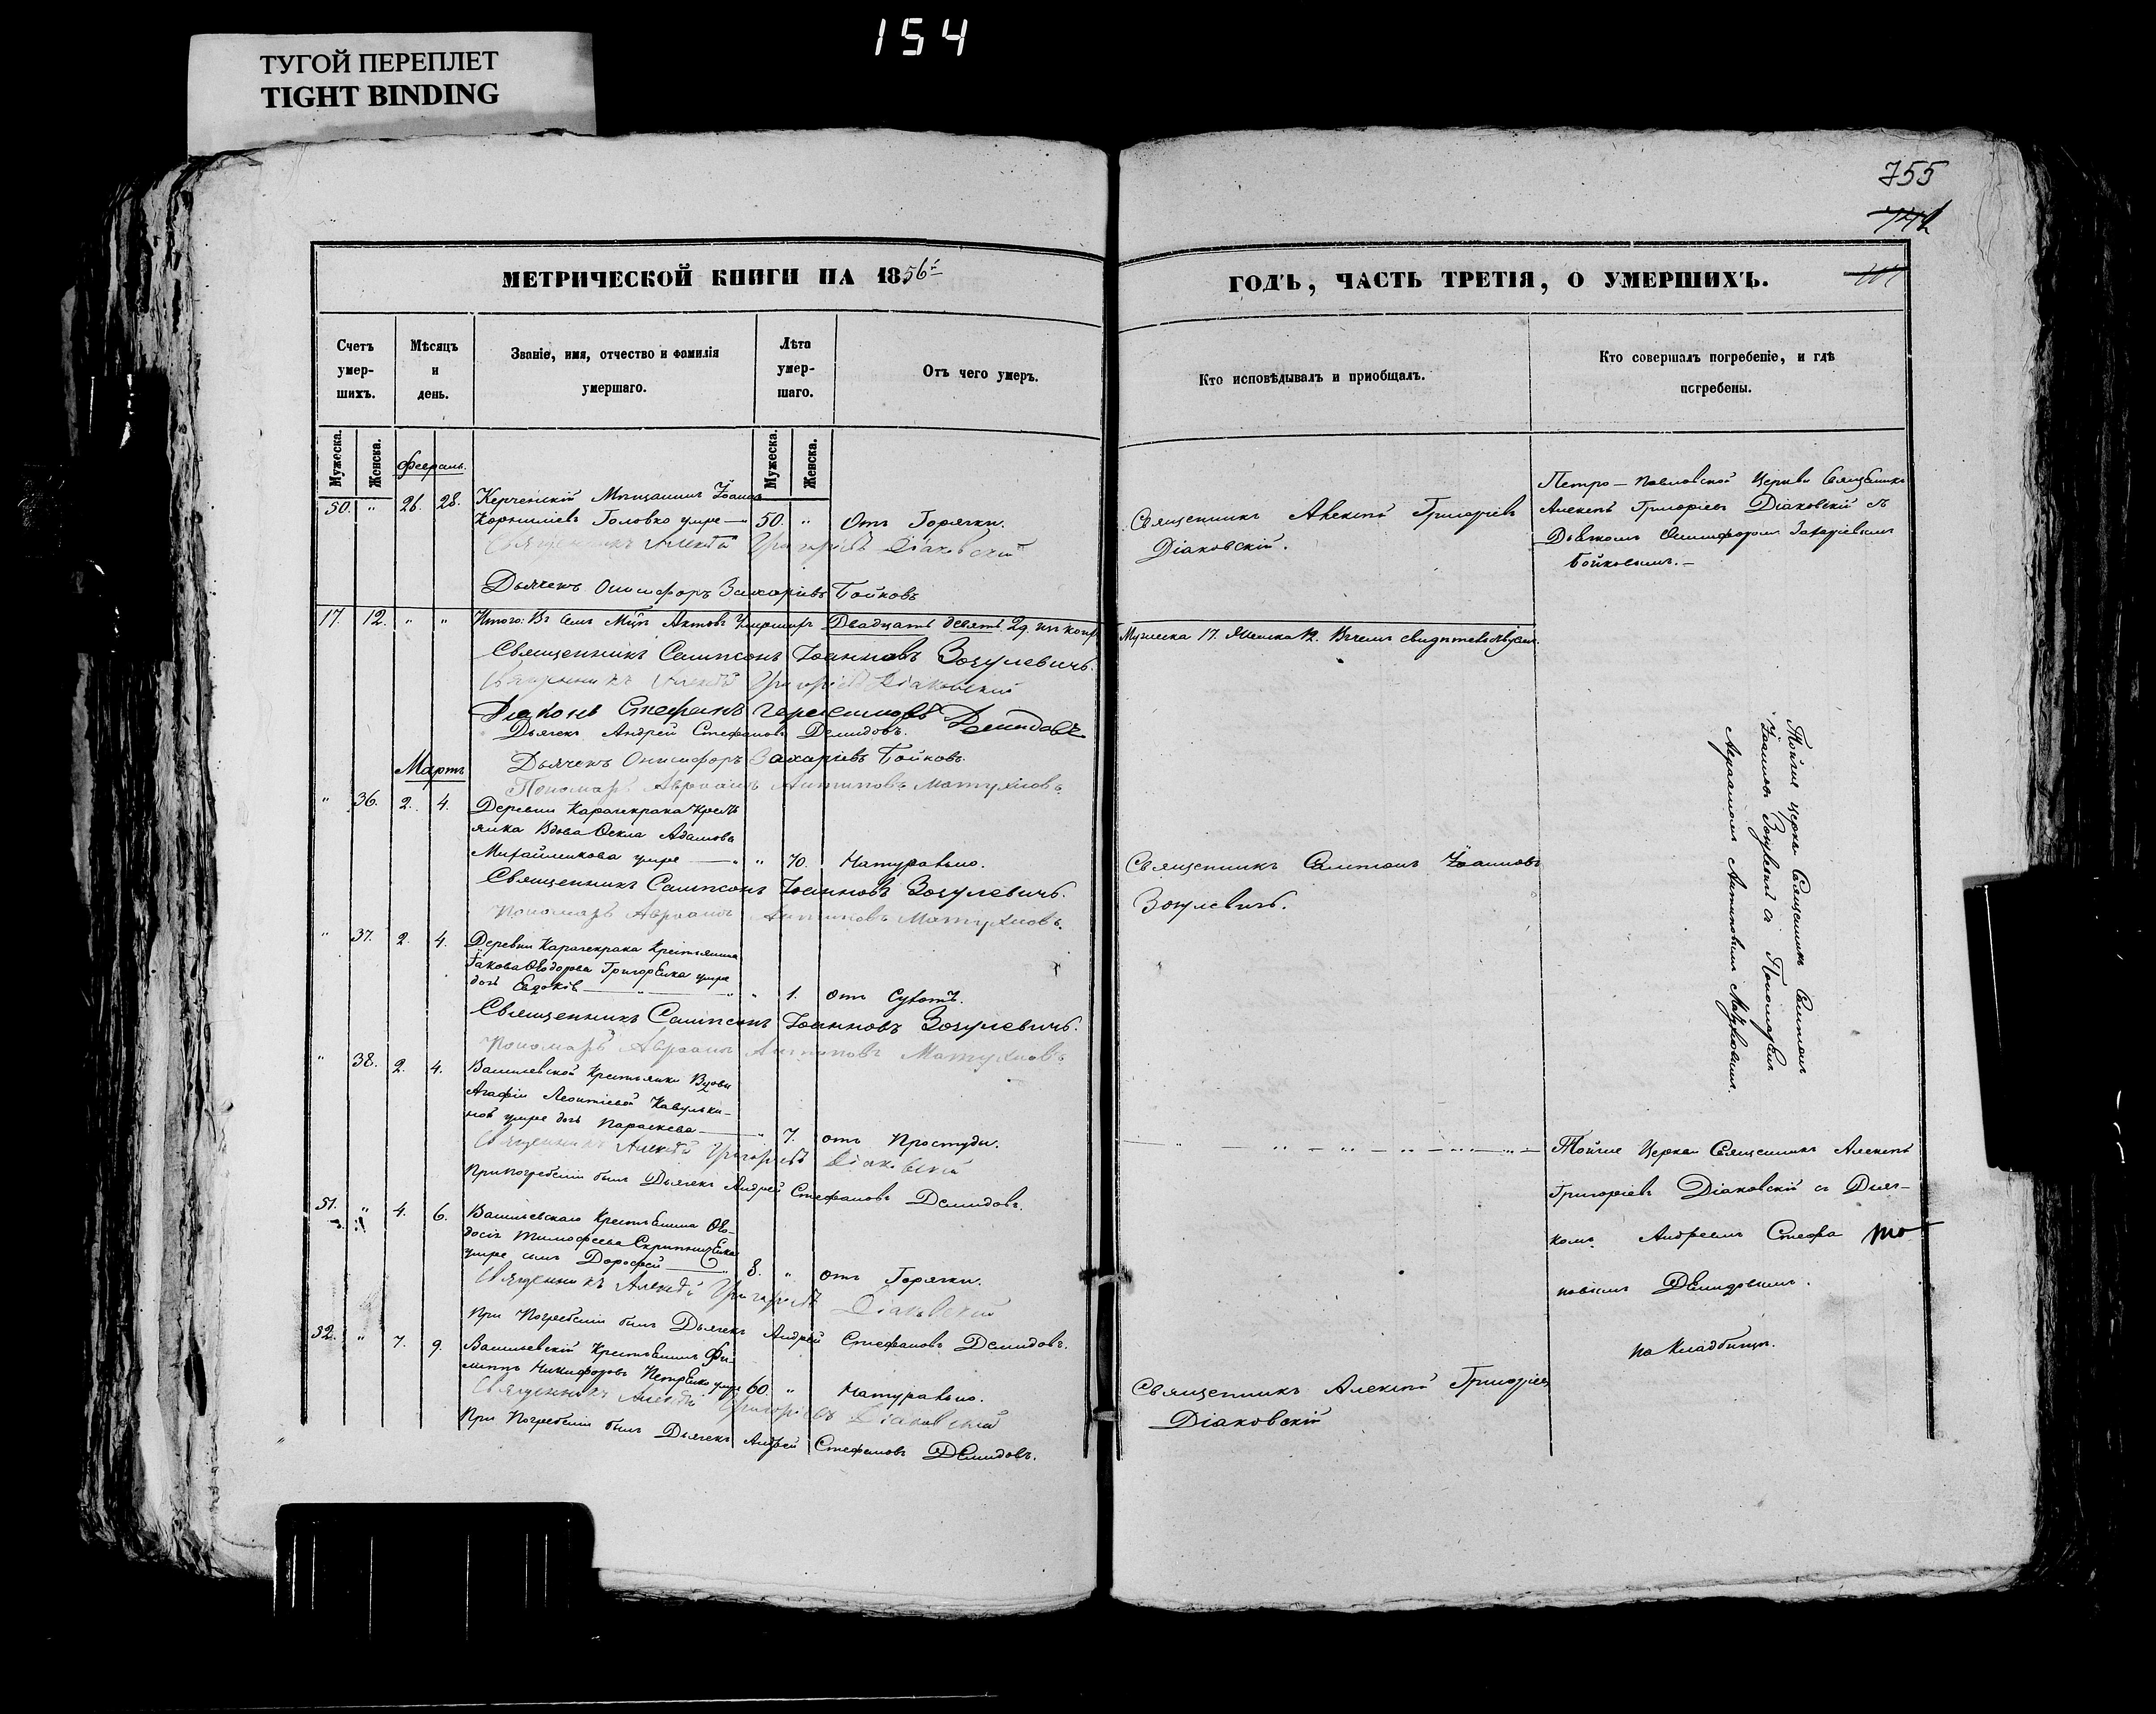 154
ТУГОЙ ПЕРЕПЛЕТ
TIGHT BINDING
755
МЕТРИЧЕСКОЙ КНИГИ НА 1856й
ГОДЪ, ЧАСТЬ ТРЕТІЯ, О УМЕРШИХЪ.
Счетъ умер-шихъ.
Мѣсяцъ и день.
Званіе, имя, отчество и фамилія умершаго.
Лѣта умер-шаго.
Отъ чего умеръ.
Кто исповѣдывалъ и приобщалъ.
Кто совершалъ погребеніе, и гдѣ погребены.
Мужеска.
Женска.
Февраль.
Мужеска.
Женска.
50. " 26. 28. Керченскій Мѣщанинъ Іоаннъ
Корниліевъ Головко умре — 50. " Отъ Горячки.
Священникъ Алексѣй Григоріевъ Діаковскій
Дьячекъ Онисифоръ Захаріевъ Бойковъ
Священникъ Алексѣй Григоріевъ
Діаковскій.
Петро-Павловской Церкви Священникъ
Алексѣй Григоріевъ Діаковскій съ
Дьячкомъ Онисифоромъ Захаріевымъ
Бойковымъ.—
17. 12. " " Итого: Въ семъ Мцѣ Актовъ Умершихъ Двадцать девять 29. изъ коихъ
Мужеска 17. Женска 12. Въ чемъ свидѣтельствуемъ.
Священникъ Сампсонъ Іоанновъ Зогулевичъ.
Священникъ Алексѣй Григоріевъ Діаковскій
Діаконъ Стефанъ Герасимовъ Демидовъ
Дьячекъ Андрей Стефановъ Демидовъ.
Дьячекъ Онисифоръ Захаріевъ Бойковъ.
Пономарь Авраамъ Антиповъ Матухновъ.
Мартъ
" 36. 2. 4. Деревни Карачекрака Кресть
янка Вдова Ѳекла Адамова
Михайликова умре — " " 70. Натурально.
Священникъ Сампсонъ Іоанновъ Зогулевичъ.
Пономарь Авраамъ Антиповъ Матухновъ.
Священникъ Сампсонъ Іоанновъ
Зогулевичъ.
Тойже церкви Священникъ Сампсонъ
Іоанновъ Зогулевичъ съ Пономаремъ
Авраамомъ Антиповымъ Матухновымъ.
" 37. 2. 4. Деревни Карачекрака Крестьянина
Іакова Ѳеодорова Григоренка умре
дочь Евдокія — " " 1. отъ Сухотъ.
Священникъ Сампсонъ Іоанновъ Зогулевичъ.
Пономарь Авраамъ Антиповъ Матухновъ
" 38. 2. 4. Васильевской Крестьянки Вдовы
Агафіи Леонтіевой
умре дочь Параскева — " 7. отъ Простуды.
Священникъ Алексѣй Григоріевъ Діаковскій
При погребеніи былъ Дьячекъ Андрей Стефановъ Демидовъ.
Тойже Церкви Священникъ Алексѣй
Григоріевъ Діаковскій съ Дьяч-
комъ Андреемъ Стефа
новымъ Демидовымъ.
на Кладбищѣ.
51. " 4. 6. Васильевскаго Крестьянина Ѳео-
досія Тимофеева Скрипниченка
умре сынъ Дорофей — 8. " отъ Горячки.
Священникъ Алексѣй Григоріевъ Діаковскій
При Погребеніи былъ Дьячекъ Андрей Стефановъ Демидовъ.
52. " 7. 9. Васильевскій Крестьянинъ Фи-
липпъ Никифоровъ Петренко умре 60. " Натурально.
Священникъ Алексѣй Григоріевъ Діаковскій
При Погребеніи былъ Дьячекъ Андрей Стефановъ Демидовъ.
Священникъ Алексѣй Григоріевъ
Діаковскій